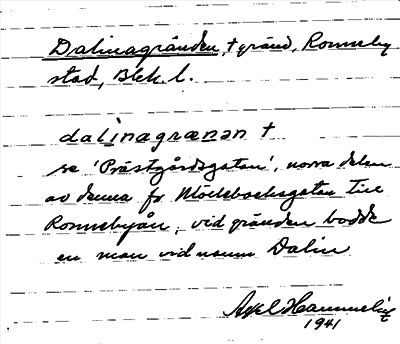 Dalinagränden, † gränd, Ronneby
stad, Blek. l.
dalinagrænən †
se 'Prästgårdsgatan', norra delen
av denna fr. Möllebacksgatan till
Ronnebyån, vid gränden bodde
en man vid namn Dalin
Axel Hammelig
1941